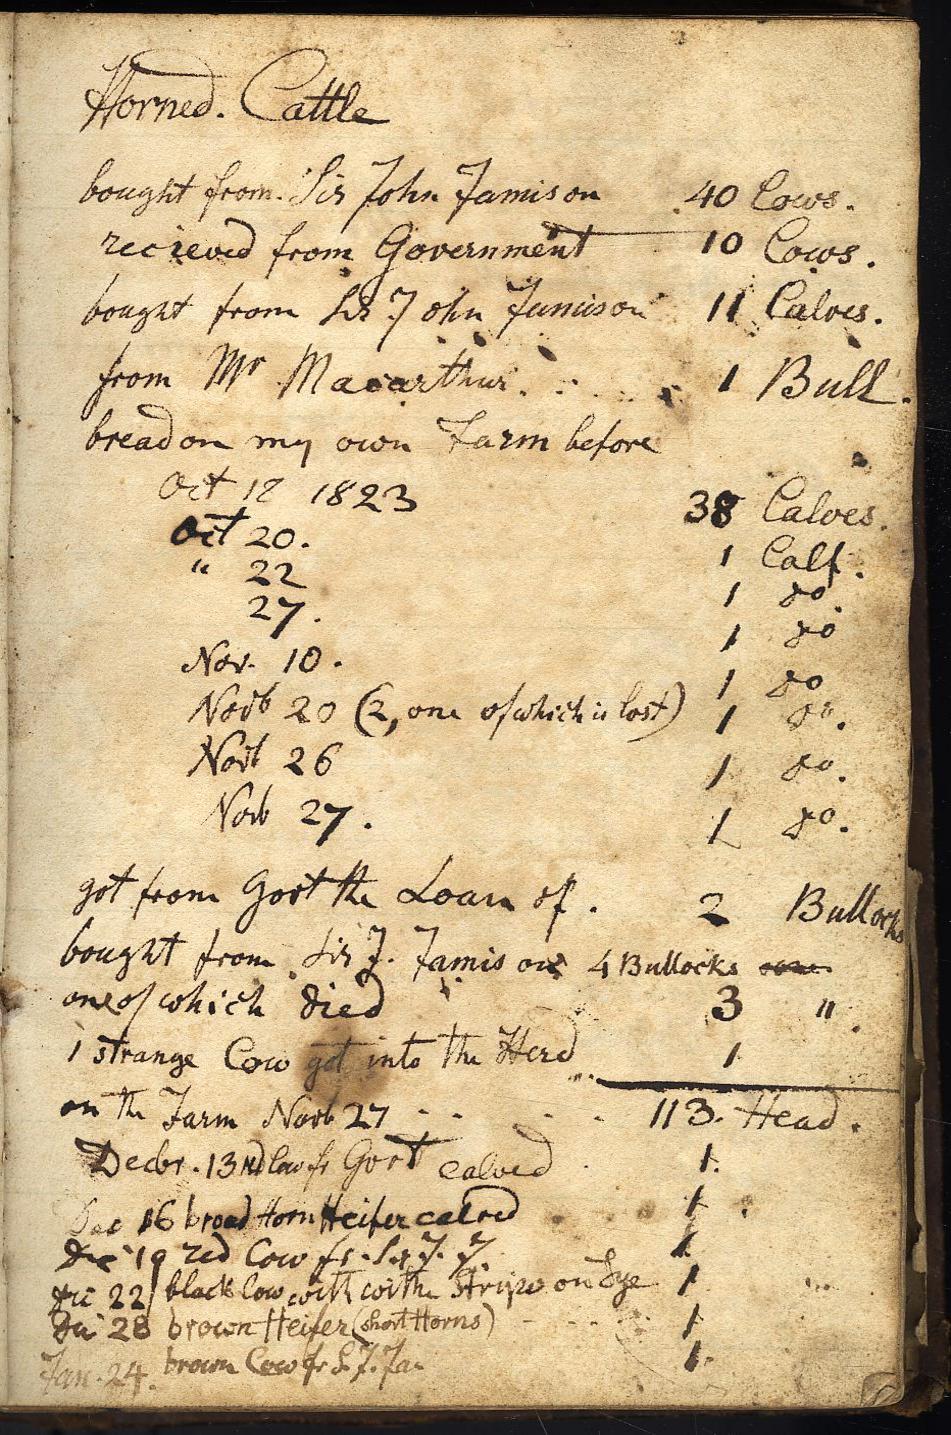 Horned. Cattle
bought from. Sir John Jamison 40 Cows.
recieved from Government 10 Cows.
bought from Sir John Jamison 11 Calves.
from Mr Macarthur. . . . . 1 Bull.
bread on my own Farm before
Oct 12 1823 38 Calves.
Oct 20. 1 Calf.
" 22 1 do.
27. 1 do
Nov. 10. 1 do
Novb 20 (2, one of which is lost) 1 do.
Novb 26 1 do.
Novb 27. 1 do.
got from Govt the Loan of. 2 Bullocks
bought from Sir J. Jamison 4 Bullocks
one of which died 3 ".
1 strange Cow got into the Herd 1
on the Farm Novb 27 - - - - 113. Head.
Decbr. 13 Cow fr Govt calved 1.
Dec 16 broad Horn Heifer calved 1
Dec 19 red Cow fr. Sir J. J. 1
Dec 22 black Cow with Stripe on Eye 1
Dec 28 brown Heifer (short Horns) - - - 1
Jan. 24. brown Cow fr S. J. Ja 1.